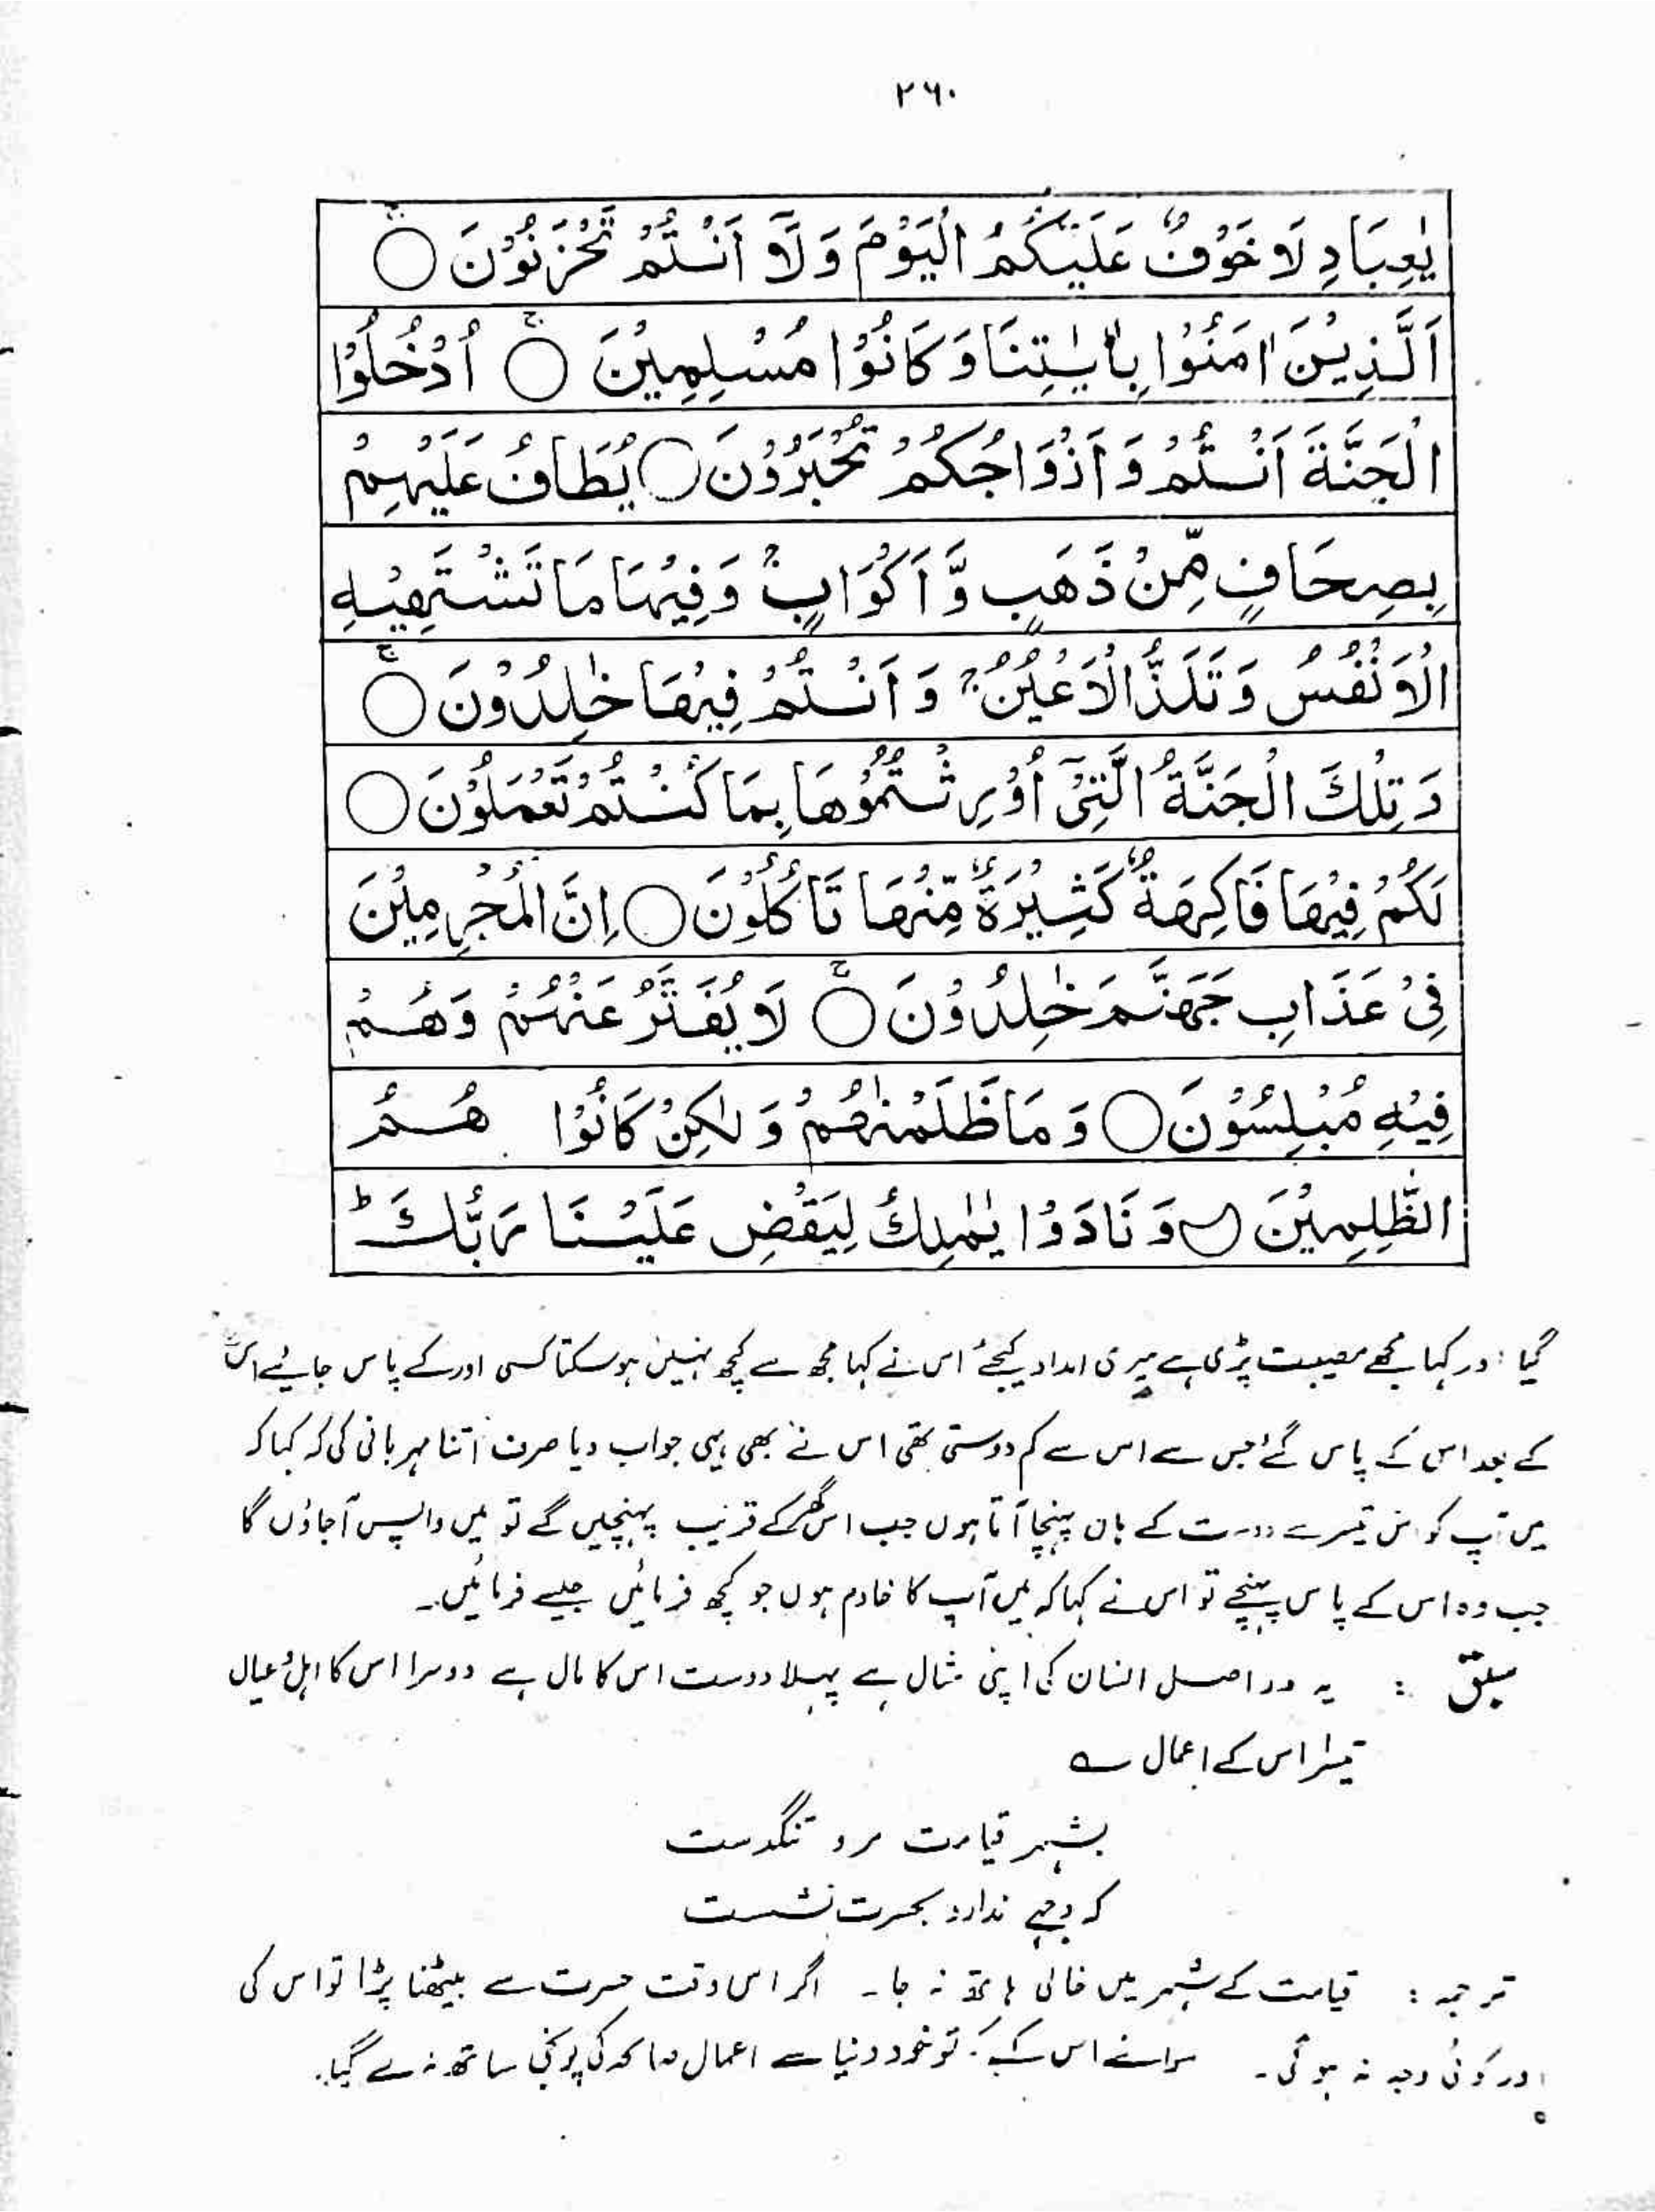 ۲۶۰
یٰعِبَادِ لَا خَوْفٌ عَلَیْكُمُ الْیَوْمَ وَ لَاۤ اَنْتُمْ تَحْزَنُوْنَ ○
اَلَّذِیْنَ اٰمَنُوْا بِاٰیٰتِنَا وَ كَانُوْا مُسْلِمِیْنَ ○ اُدْخُلُوا
الْجَنَّةَ اَنْتُمْ وَ اَزْوَاجُكُمْ تُحْبَرُوْنَ ○ یُطَافُ عَلَیْهِمْ
بِصِحَافٍ مِّنْ ذَهَبٍ وَّ اَكْوَابٍ ۚ وَ فِیْهَا مَا تَشْتَهِیْهِ
الْاَنْفُسُ وَ تَلَذُّ الْاَعْیُنُ ۚ وَ اَنْتُمْ فِیْهَا خٰلِدُوْنَ ○
وَ تِلْكَ الْجَنَّةُ الَّتِیْۤ اُوْرِثْتُمُوْهَا بِمَا كُنْتُمْ تَعْمَلُوْنَ ○
لَكُمْ فِیْهَا فَاكِهَةٌ كَثِیْرَةٌ مِّنْهَا تَاْكُلُوْنَ ○ اِنَّ الْمُجْرِمِیْنَ
فِیْ عَذَابِ جَهَنَّمَ خٰلِدُوْنَ ○ لَا یُفَتَّرُ عَنْهُمْ وَ هُمْ
فِیْهِ مُبْلِسُوْنَ ○ وَ مَا ظَلَمْنٰهُمْ وَ لٰكِنْ كَانُوْا هُمُ
الظّٰلِمِیْنَ ○ وَ نَادَوْا یٰمٰلِكُ لِیَقْضِ عَلَیْنَا رَبُّكَ ؕ
گیا اور کہا مجھے مصیبت پڑی ہے میری امداد کیجئے اس نے کہا مجھ سے کچھ نہیں ہوسکتا کسی اور کے پاس جائیے اس
کے بعد اس کے پاس گئے جس سے اس سے کم دوستی تھی اس نے بھی یہی جواب دیا صرف اتنا مہربانی کی کہ کہا کہ
میں آپ کو اس تیسرے دوست کے ہاں پہنچا آتا ہوں جب اس گھر کے قریب پہنچیں گے تو میں واپس آجاؤں گا
جب وہ اس کے پاس پہنچے تو اس نے کہا کہ میں آپ کا خادم ہوں جو کچھ فرمائیں جیسے فرمائیں۔
سبق : یہ دراصل انسان کی اپنی مثال ہے پہلا دوست اس کا مال ہے دوسرا اس کا اہل و عیال
تیسرا اس کے اعمال ؎
بشہر قیامت مرو تنگدست
کہ وجہے ندارد بحسرت نشست
ترجمہ : قیامت کے شہر میں خالی ہاتھ نہ جا۔ اگر اس وقت حسرت سے بیٹھنا پڑا تو اس کی
اور کوئی وجہ نہ ہوگی۔ سوائے اس کے کہ تو خود دنیا سے اعمال صالحہ کی پونجی ساتھ نہ لے گیا۔